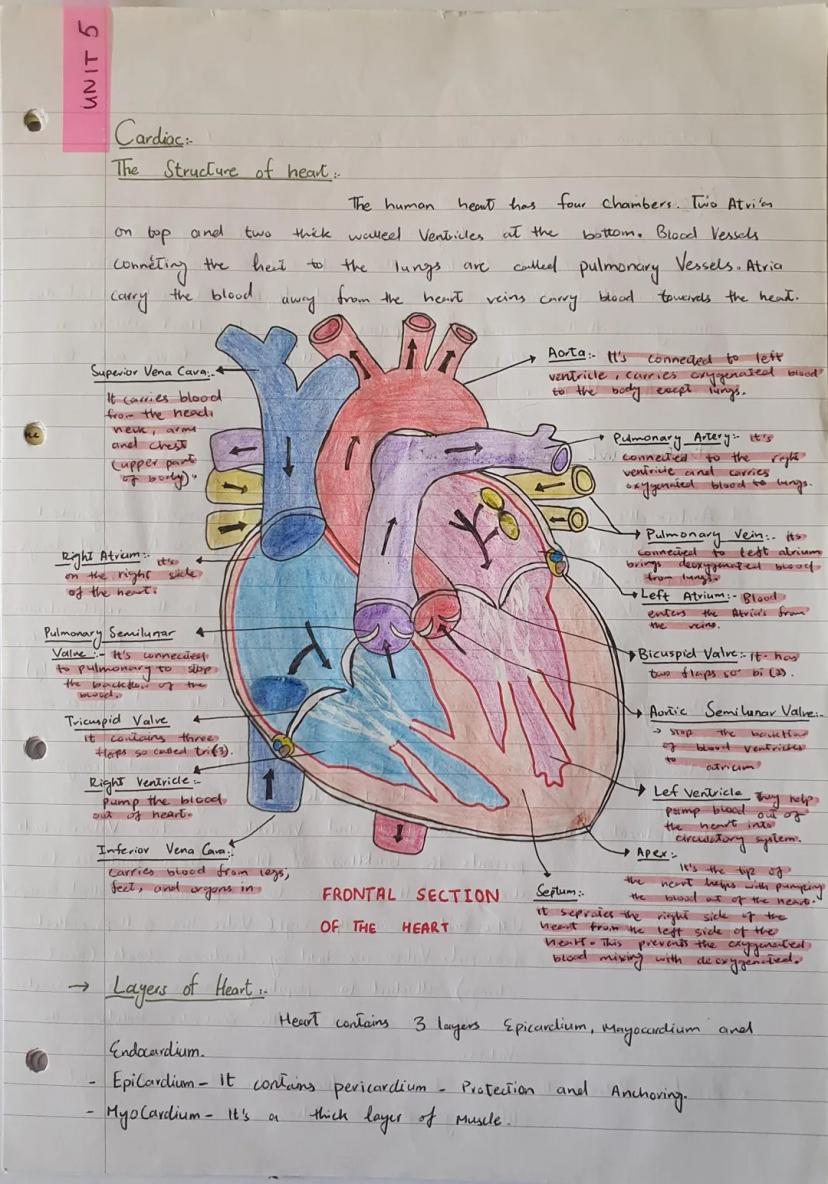 UNIT 5
Cardiac:-
The Structure of heart:-
The human heart has four chambers. Two Atria
on top and two thick walled Ventricles at the bottom. Blood Vessels
conneting the heat to the lungs are called pulmonary Vessels. Atria
carry the blood away from the heart veins carry blood towards the heat.
Superior Vena Cava:-
It carries blood
from the head,
neck, arms
and chest
(upper part
of body).
Right Atrium:- it's
on the right side
of the heart.
Pulmonary Semilunar
Valve:- It's connected
to pulmonary to stop
the backflow of the
blood.
Tricuspid Valve
it contains three
flaps so called tri(3).
Right Ventricle:-
pump the blood
out of heart.
Inferior Vena Cava:-
Carries blood from legs,
feet, and organs in
Aorta:- It's connected to left
ventricle, carries oxygenated blood
to the body except lungs.
Pulmonary Artery:- it's
connected to the right
ventricle and carries
oxygenated blood to lungs.
Pulmonary Vein:- its
connected to left atrium
brings deoxygenated blood
from lungs.
Left Atrium:- Blood
enters the Atria's from
the veins.
Bicuspid Valve:- it has
two flaps so bi (2).
Aortic Semilunar Valve:-
→ Stop the backflow
of blood ventricles
to atrium
Lef Ventricle They help
pump blood out of
the heart into
circulatory system.
Apex:-
It's the tip of
the heart helps with pumping
the blood out of the heart.
Septum:-
It seprates the right side of the
heart from the left side of the
heart. This prevents the oxygenated
blood mixing with deoxygenated.
FRONTAL SECTION
OF THE HEART
→ Layers of Heart:-
Heart contains 3 layers Epicardium, Mayocardium and
Endocardium.
- EpiCardium - It contains pericardium - Protection and Anchoring.
- MyoCardium - It's a thick layer of Muscle.